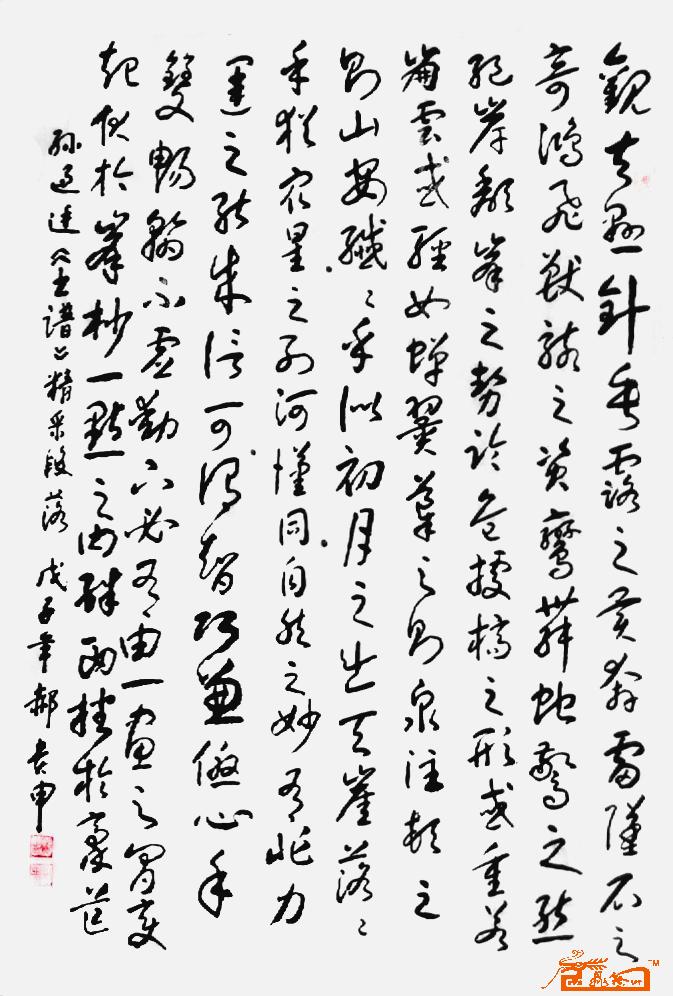 觀夫懸針垂露之異奔雷墜石之
奇鴻飛獸駭之資鸞舞蛇驚之態
絕岸頹峯之勢臨危據槁之形或重若
崩雲或輕如蟬翼導之則泉注頓之
則山安纖〻乎似初月之出天崖落〻
乎猶眾星之列河漢同自然之妙有非力
運之能成信可謂智巧兼優心手
雙暢翰不虛動下必有由一畫之間變
起伏於峯杪一點之內殊衄挫於毫芒
孫過庭《书譜》精采段落 戊子年 郝